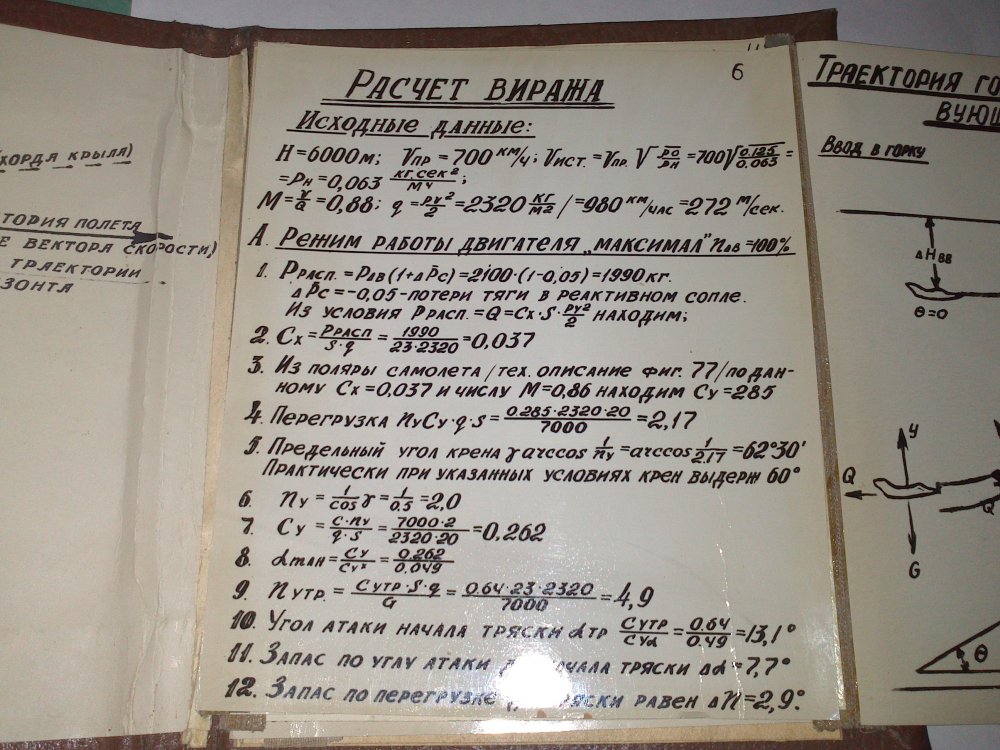 (хорда крыла)
тория полета
е вектора скорости)
траектории
зонта
6
Расчет виража
Исходные данные:
H=6000м; Vпр=700 км/ч; Vист.=Vпр. √ρо/ρн=700√0.125/0.063=
=ρн=0,063 кг.сек²/м4;
M=V/a=0,88; q=ρV²/2=2320 кг/м2/=980 км/час=272 м/сек.
А. Режим работы двигателя „максимал" nдв=100%
1. Pрасп.=Pдв(1+ΔP̄с)=2100·(1-0,05)=1990кг.
ΔP̄с=-0,05-потери тяги в реактивном сопле.
Из условия Pрасп.=Q=Cx·S·ρV²/2 находим;
2. Cx=Pрасп/S·q=1990/23·2320=0,037
3. Из поляры самолета/тех. описание фиг. 77/по дан-
ному Cx=0,037 и числу M=0,86 находим Cy=285
4. Перегрузка nyCy·q·S=0.285·2320·20/7000=2,17
5. Предельный угол крена γ arccos 1/ny=arccos 1/2.17=62°30'
Практически при указанных условиях крен выдерж 60°
6. ny=1/cos γ=1/0,5=2,0
7. Cy=C·ny/q·S=7000·2/2320·20=0,262
8. αман=Cy/Cyx=0,262/0,049
9. nутр.=Cутр·S·q/G=0.64·23·2320/7000=4,9
10. Угол атаки начала тряски αтр Cутр/Cyα=0,64/0,49=13,1°
11. Запас по углу атаки до начала тряски Δα=7,7°
12. Запас по перегрузке тряски равен Δn=2,9°.
Траектория го
вующ
Ввод в горку
ΔHвв
θ=0
У
Q
Q
G
θ